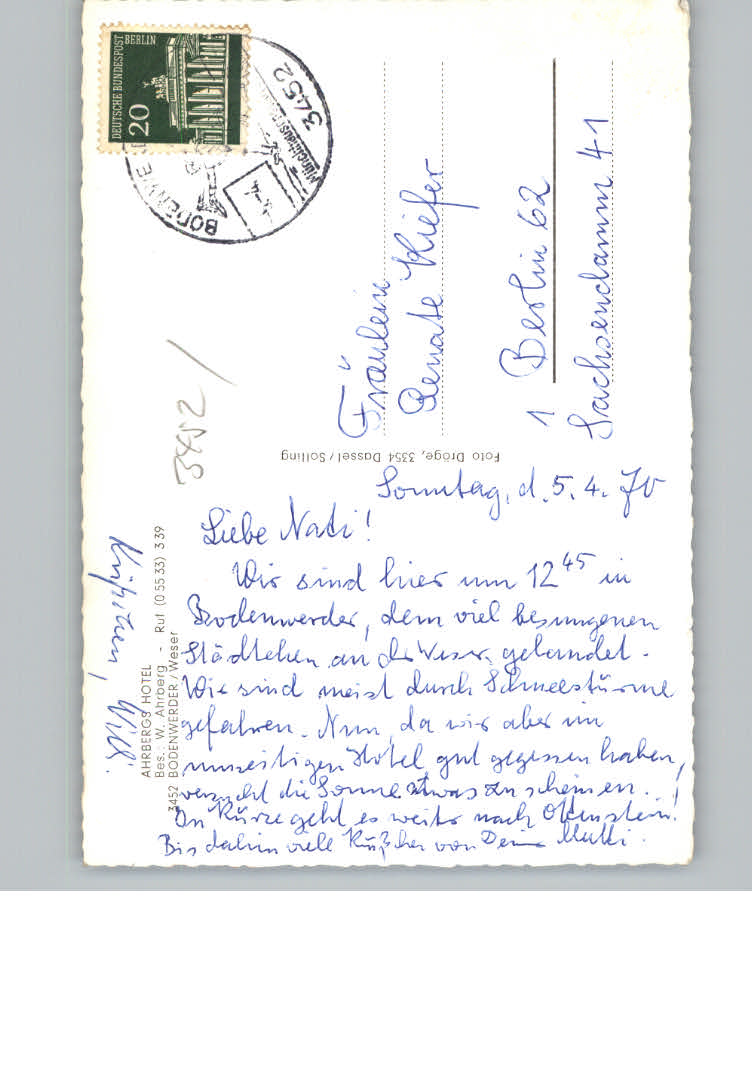 Sonntag, d. 5. 4. 70
Liebe Nati!
Wir sind hier um 12 45 in
Bodenwerder, dem viel besungenen
Städtchen an der Weser, gelandet.
Wir sind meist durch Schneestürme
gefahren. Nun, da wir aber im
umseitigen Hotel gut gegessen haben,
versucht die Sonne etwas zu scheinen.
In Kürze geht es weiter nach Ottenstein!
Bis dahin viele Küßchen von Deine Mutti.
Küßchen, Willi.
AHRBERGS HOTEL
Bes.: W. Ahrberg - Ruf (0 55 33) 3 39
3452 BODENWERDER / Weser
Foto Dröge, 3354 Dassel / Solling
Fräulein
Renate Kiefer
1 Berlin 62
Sachsendamm 41
3452
DEUTSCHE BUNDESPOST
BERLIN
20
3452